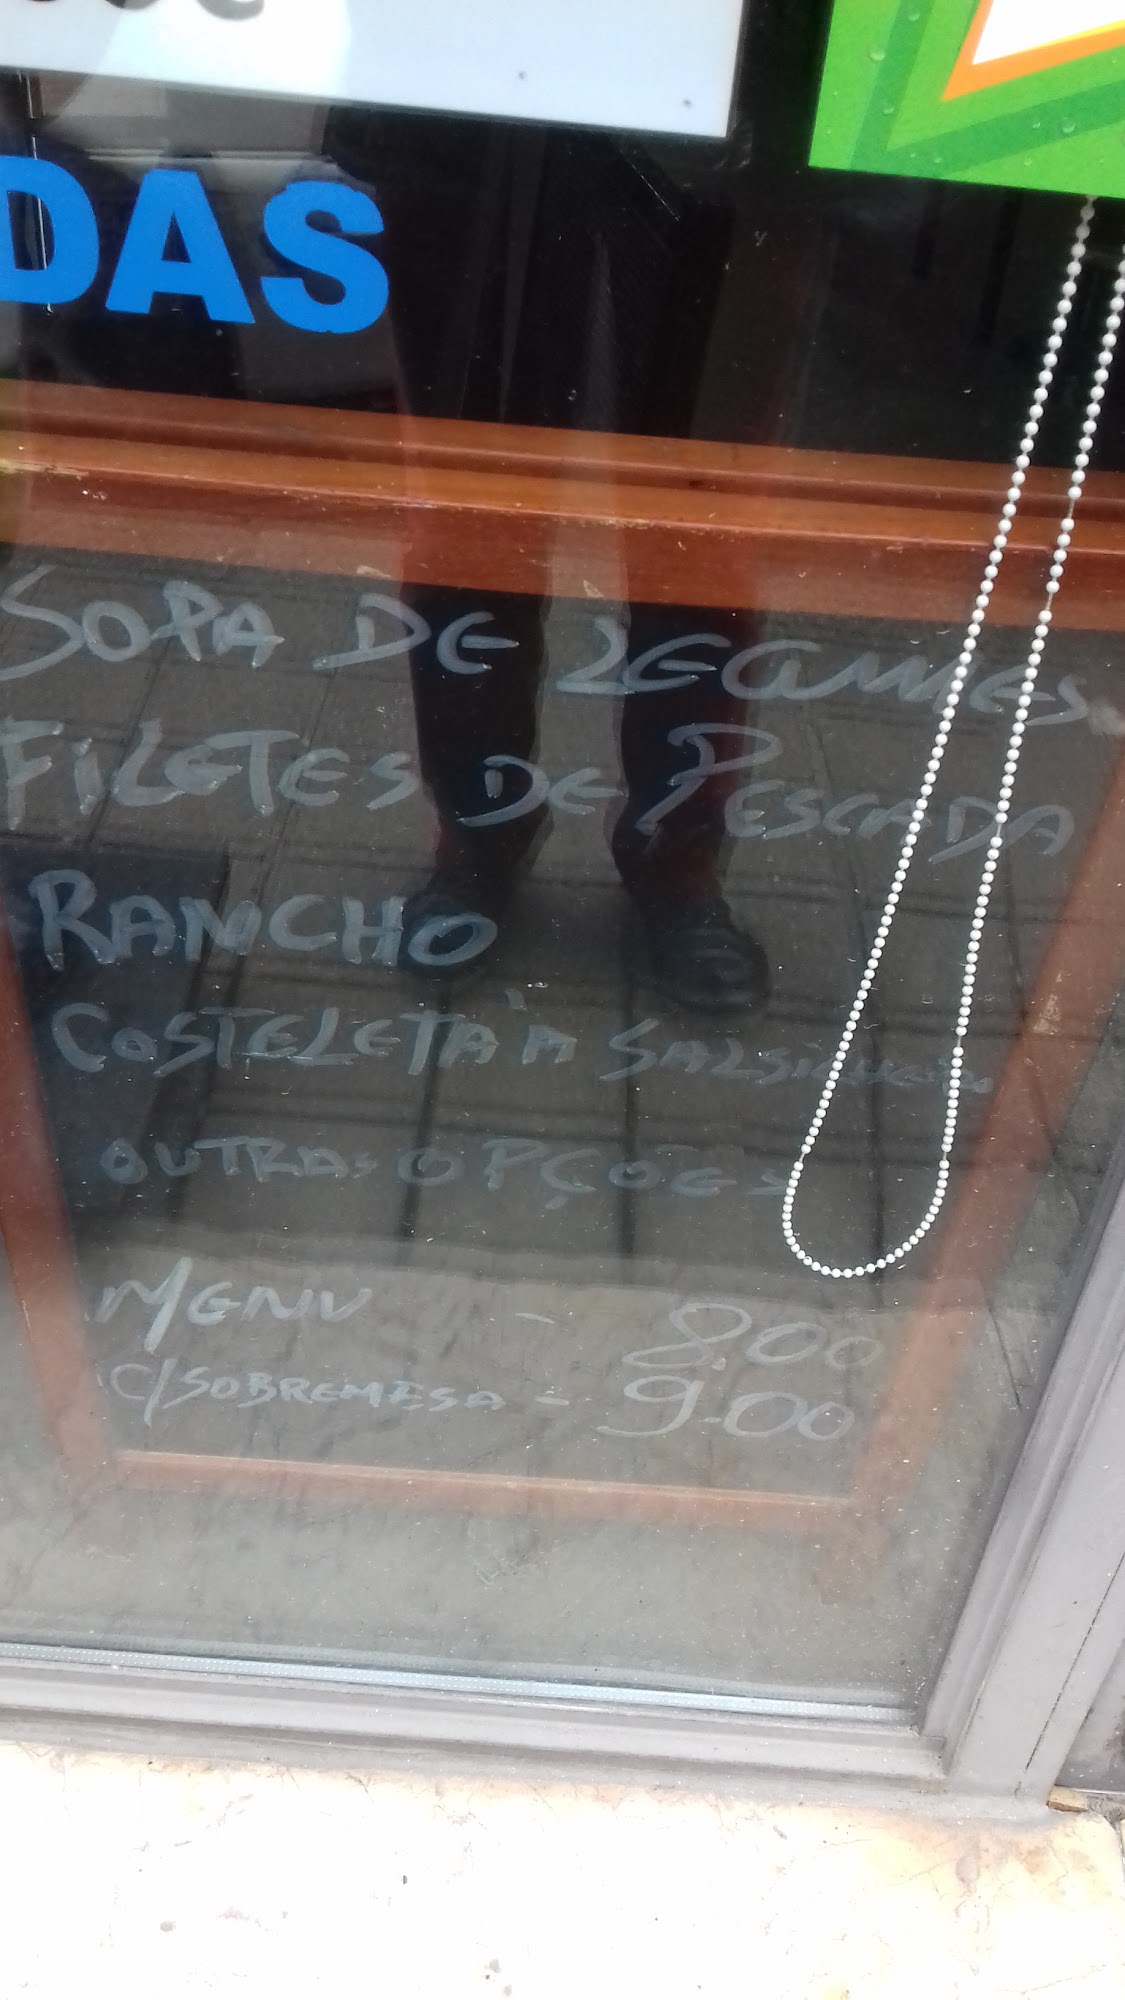 DAS
SOPA DE LEGUMES
FILETES DE PESCADA
RANCHO
COSTELETA À SALSICHEIRO
OUTRAS OPÇÕES
MENU - 8,00
C/SOBREMESA - 9.00